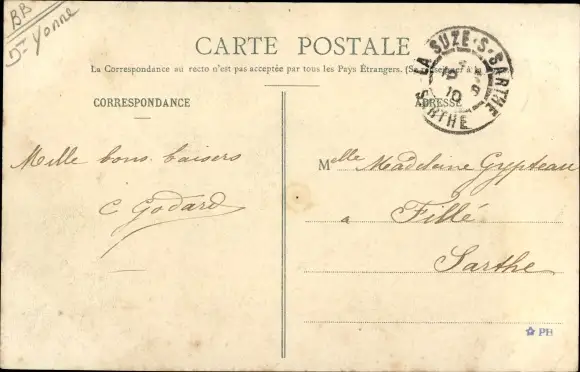 BB
Dr Yonne
CARTE POSTALE
La Correspondance au recto n'est pas acceptée par tous les Pays Étrangers. (Se renseigner à la
LA SUZE-S-SARTHE
10
SARTHE
CORRESPONDANCE
ADRESSE
Mille bons baisers
C Godard
Melle Madeleine Gypteau
a Fillé
Sarthe
PH